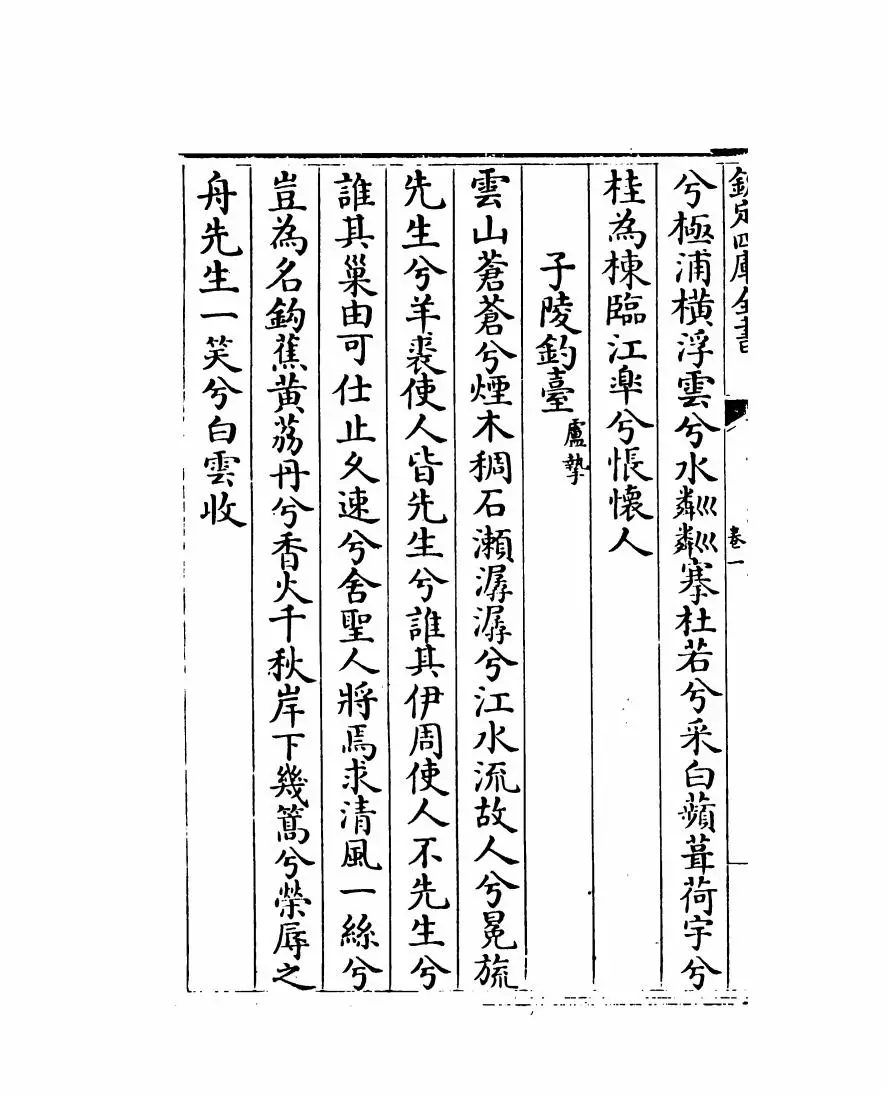 欽定四庫全書
卷一
兮極浦横浮雲兮水粼巛粼巛搴杜若兮采白蘋葺荷宇兮
桂為棟臨江臯兮悵懐人
子陵釣臺 盧摯
雲山蒼蒼兮煙木稠石瀬潺潺兮江水流故人兮冕旒
先生兮羊裘使人皆先生兮誰其伊周使人不先生兮
誰其巢由可仕止乆速兮舍聖人將焉求清風一絲兮
豈為名鈎蕉黄荔丹兮香火千秋岸下幾篙兮榮辱之
舟先生一笑兮白雲收